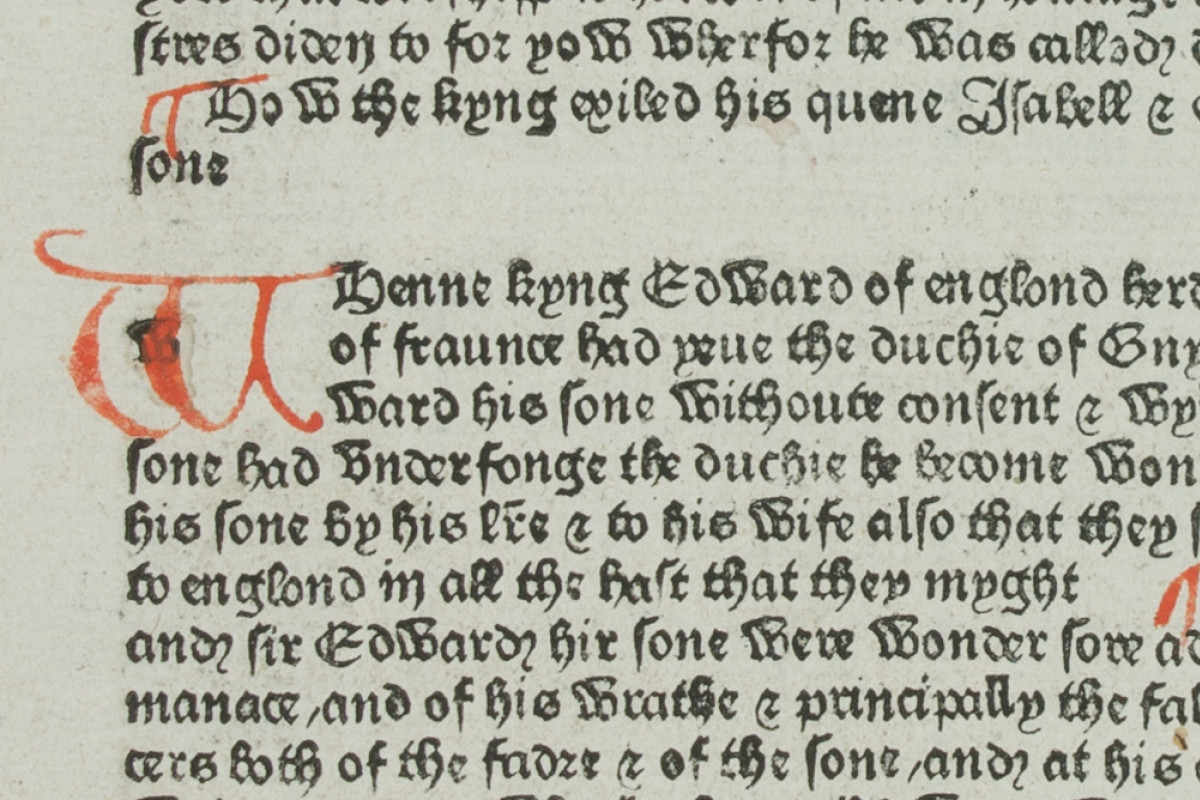 stres diden to for yow wherfor he was called
How the kyng exiled his quene Isabell &
sone
WHenne kyng Edward of englond herd
of fraunce had yeue the duchie of Gny
ward his sone withoute consent & wy
sone had vnderfonge the duchie he become won
his sone by his lr̃e & to his wife also that they
to englond in all the hast that they myght
and sir Edward hir sone were wonder sore ad
manace / and of his wrathe & principally the fal
cers both of the fadre & of the sone / and at his